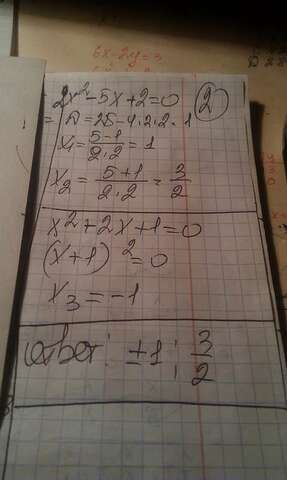 6x-2y=3
2x²-5x+2=0
②
D=25-4·2·2=1
x₁=\frac{5-1}{2·2}=1
x₂=\frac{5+1}{2·2}=\frac{3}{2}
x²+2x+1=0
(x+1)²=0
x₃=-1
ответ: ±1; \frac{3}{2}